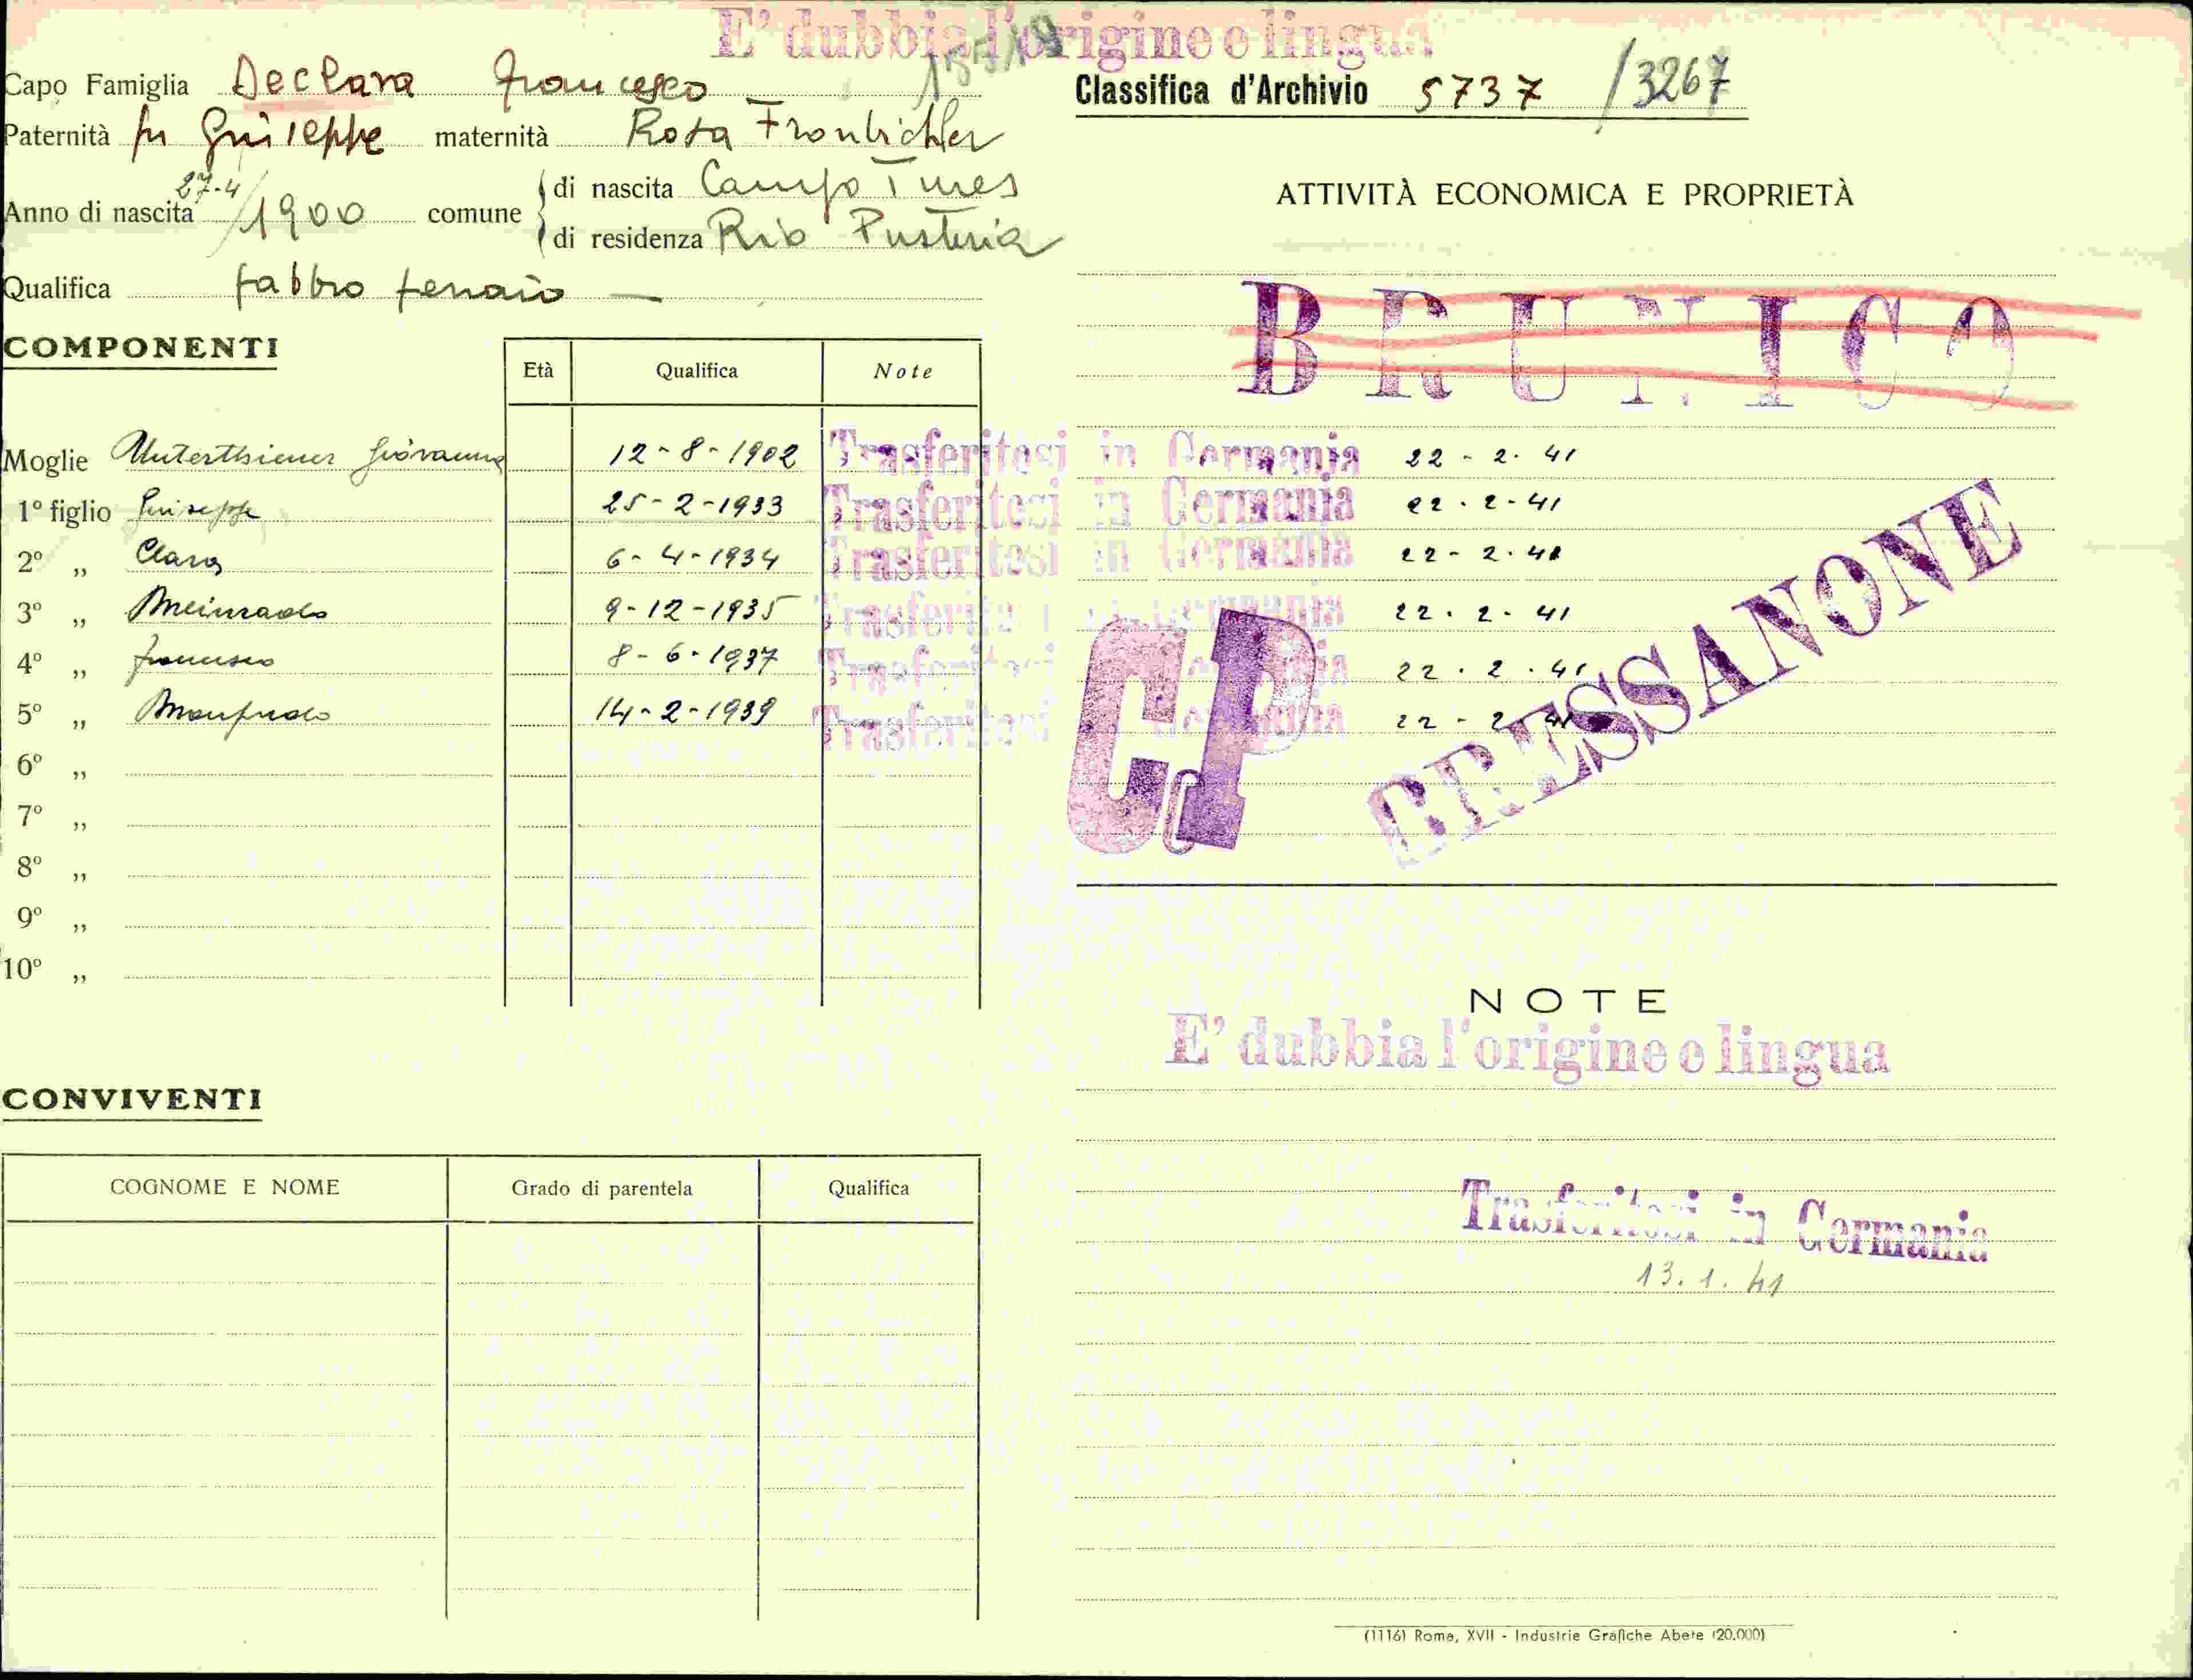 E' dubbia l'origine o lingua
Capo Famiglia Declara Francesco
Classifica d'Archivio 5737 /3267
Paternità fu Giuseppe maternità Rosa Fronbichler
Anno di nascita 27-4/1900 comune
di nascita Campo Tures
di residenza Rio Pusteria
Qualifica fabbro ferraio —
ATTIVITÀ ECONOMICA E PROPRIETÀ
BRUNICO
COMPONENTI
Età Qualifica Note
Moglie Unterthiener Giovanna 12-8-1902 Trasferitosi in Germania 22-2-41
1º figlio Giuseppe 25-2-1933 Trasferitosi in Germania 22-2-41
2º „ Clara 6-4-1934 Trasferitosi in Germania 22-2-41
3º „ Meinrado 9-12-1935 Trasferitosi in Germania 22-2-41
4º „ Francesco 8-6-1937 Trasferitosi in Germania 22-2-41
5º „ Manfredo 14-2-1939 Trasferitosi in Germania 22-2-41
6º „
7º „
8º „
9º „
10º „
CP
CRESSANONE
NOTE
E' dubbia l'origine o lingua
Trasferitosi in Germania
13.1.41
CONVIVENTI
COGNOME E NOME Grado di parentela Qualifica
(1116) Roma, XVII - Industrie Grafiche Abete (20.000)